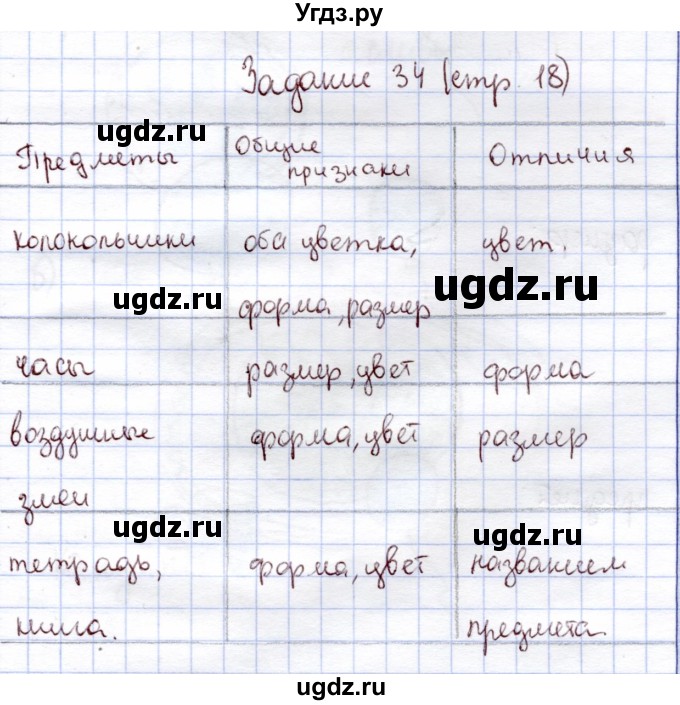 Угдз.ру
Задание 34 (стр. 18)
ugdz.ru
Предметы
Общие признаки
Отличия
колокольчики
оба цветка,
цвет.
ugdz.ru
ugdz.ru
форма, размер
часы
размер, цвет
форма
воздушные
форма, цвет
размер
змеи
ugdz.ru
ugdz.ru
тетрадь,
форма, цвет
названием
книга.
предмета.
ugdz.ru